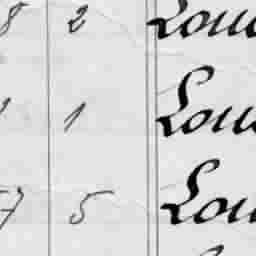 8 2 Lou
1 1 Lou
57 5 Lou